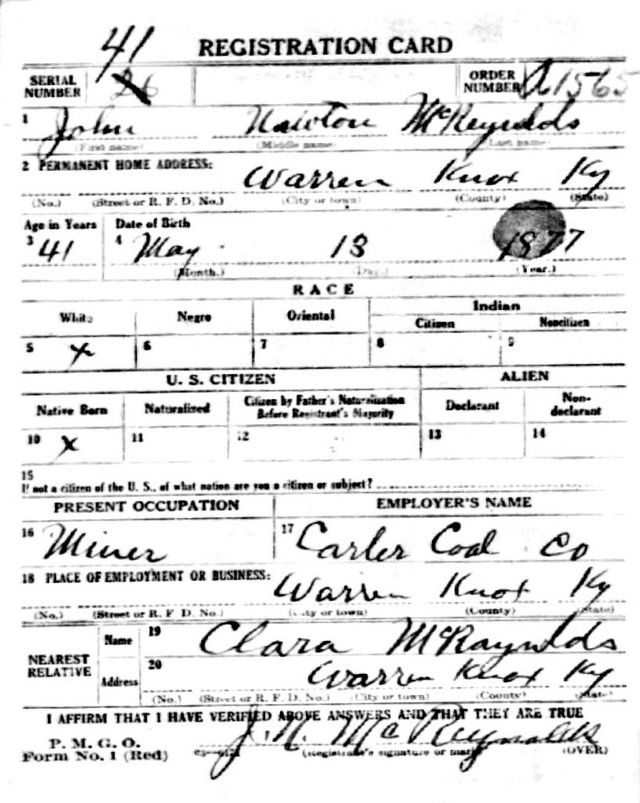 41
REGISTRATION CARD
SERIAL NUMBER 26 ORDER NUMBER A1565
1 John Newton McReynolds
(First name) (Middle name) (Last name)
2 PERMANENT HOME ADDRESS:
Warren Knox Ky
(No.) (Street or R. F. D. No.) (City or town) (County) (State)
Age in Years Date of Birth
3 41 4 May 13 1877
(Month.) (Day.) (Year.)
RACE
White Negro Oriental Indian
Citizen Noncitizen
5 x 6 7 8 9
U. S. CITIZEN ALIEN
Native Born Naturalized Citizen by Father's Naturalization Before Registrant's Majority Declarant Non-declarant
10 x 11 12 13 14
15
If not a citizen of the U. S., of what nation are you a citizen or subject?
PRESENT OCCUPATION EMPLOYER'S NAME
16 Miner 17 Carter Coal Co
18 PLACE OF EMPLOYMENT OR BUSINESS:
Warren Knox Ky
(No.) (Street or R. F. D. No.) (City or town) (County) (State)
NEAREST RELATIVE
Name 19 Clara McRaynolds
Address 20 Warren Knox Ky
(No.) (Street or R. F. D. No.) (City or town) (County) (State)
I AFFIRM THAT I HAVE VERIFIED ABOVE ANSWERS AND THAT THEY ARE TRUE
P. M. G. O.
Form No. 1 (Red) J. N. McReynolds
(Registrant's signature or mark) (OVER)